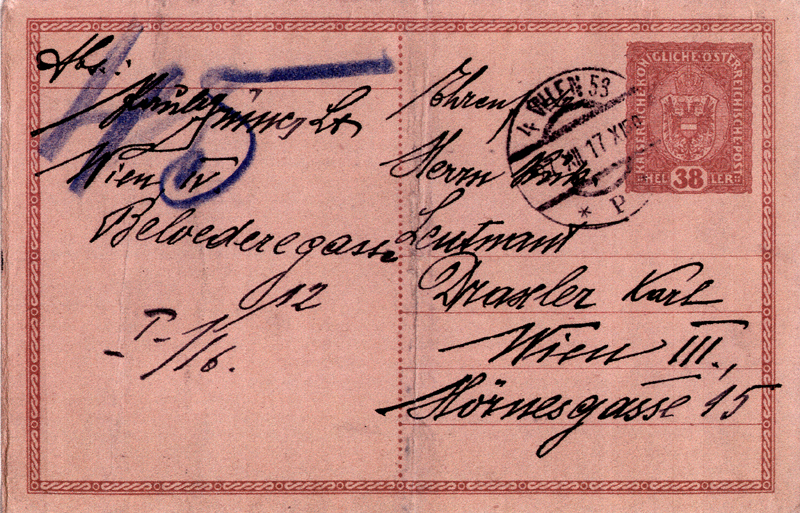 Abs.:
Lt
Wien IV
Belvederegasse
12
I-1/16.
45
Herrn
Leutnant
Draxler Karl
Wien III.,
Hörnesgasse 15
4 WIEN 53
XII 17 XI
* P
KAISERLICHE KÖNIGLICHE ÖSTERREICHISCHE POST
HEL 38 LER